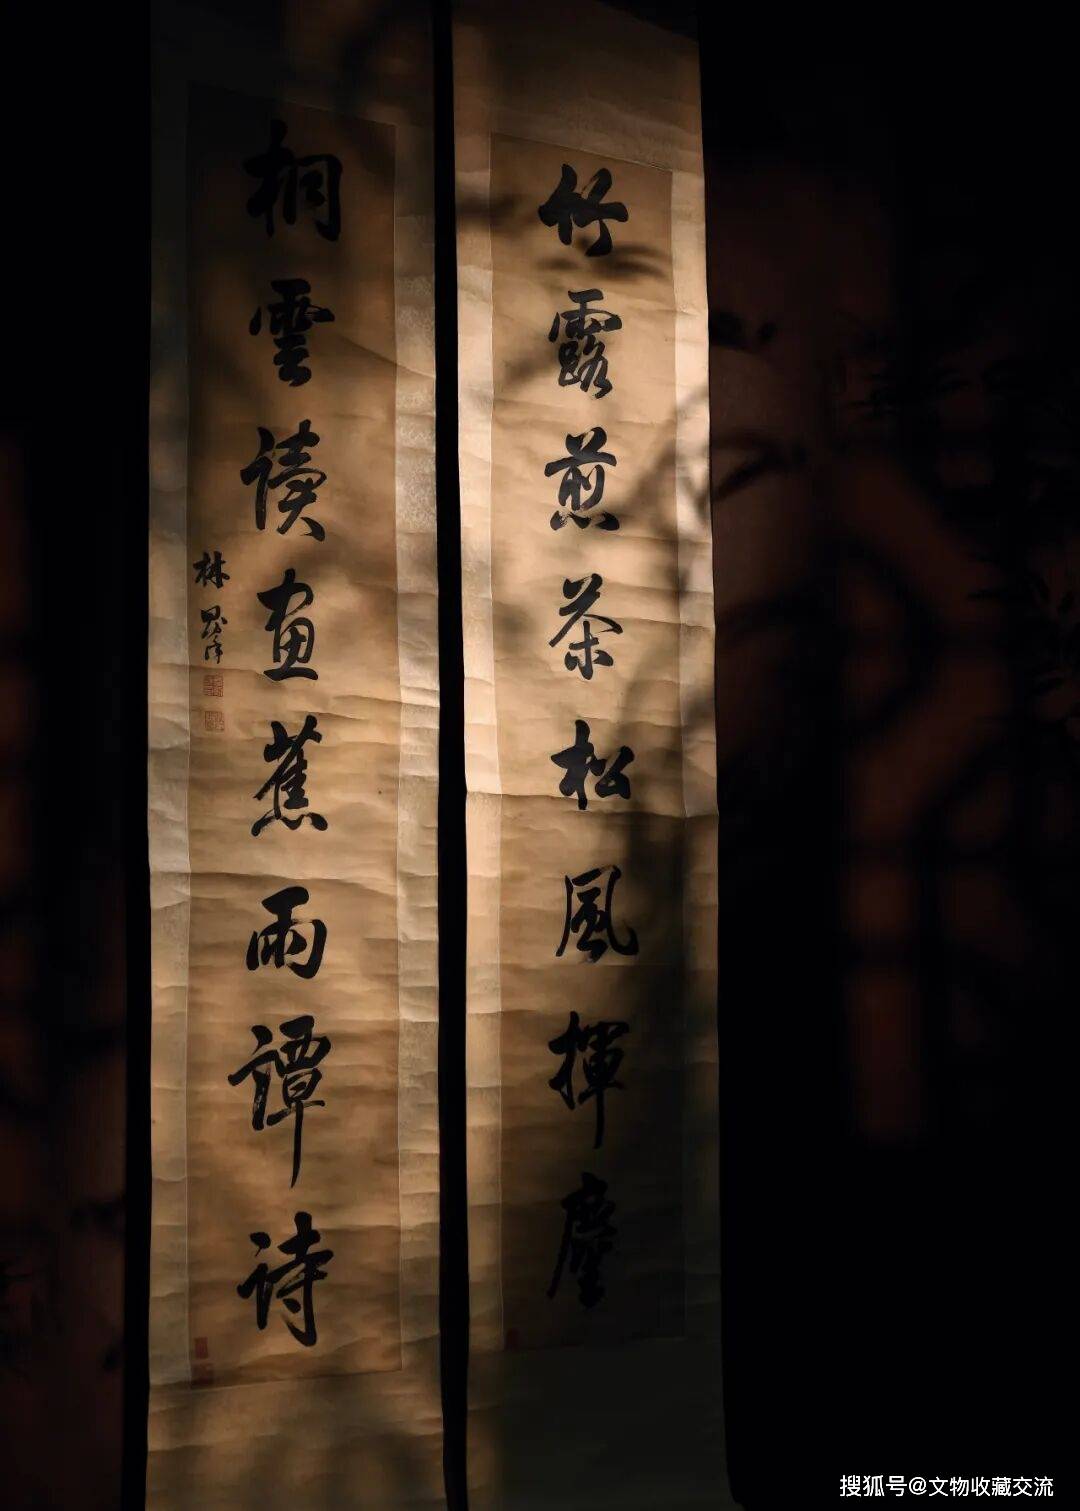 竹露煎茶松風揮麈
桐雲讀畫蕉雨譚詩
林則徐
搜狐号@文物收藏交流